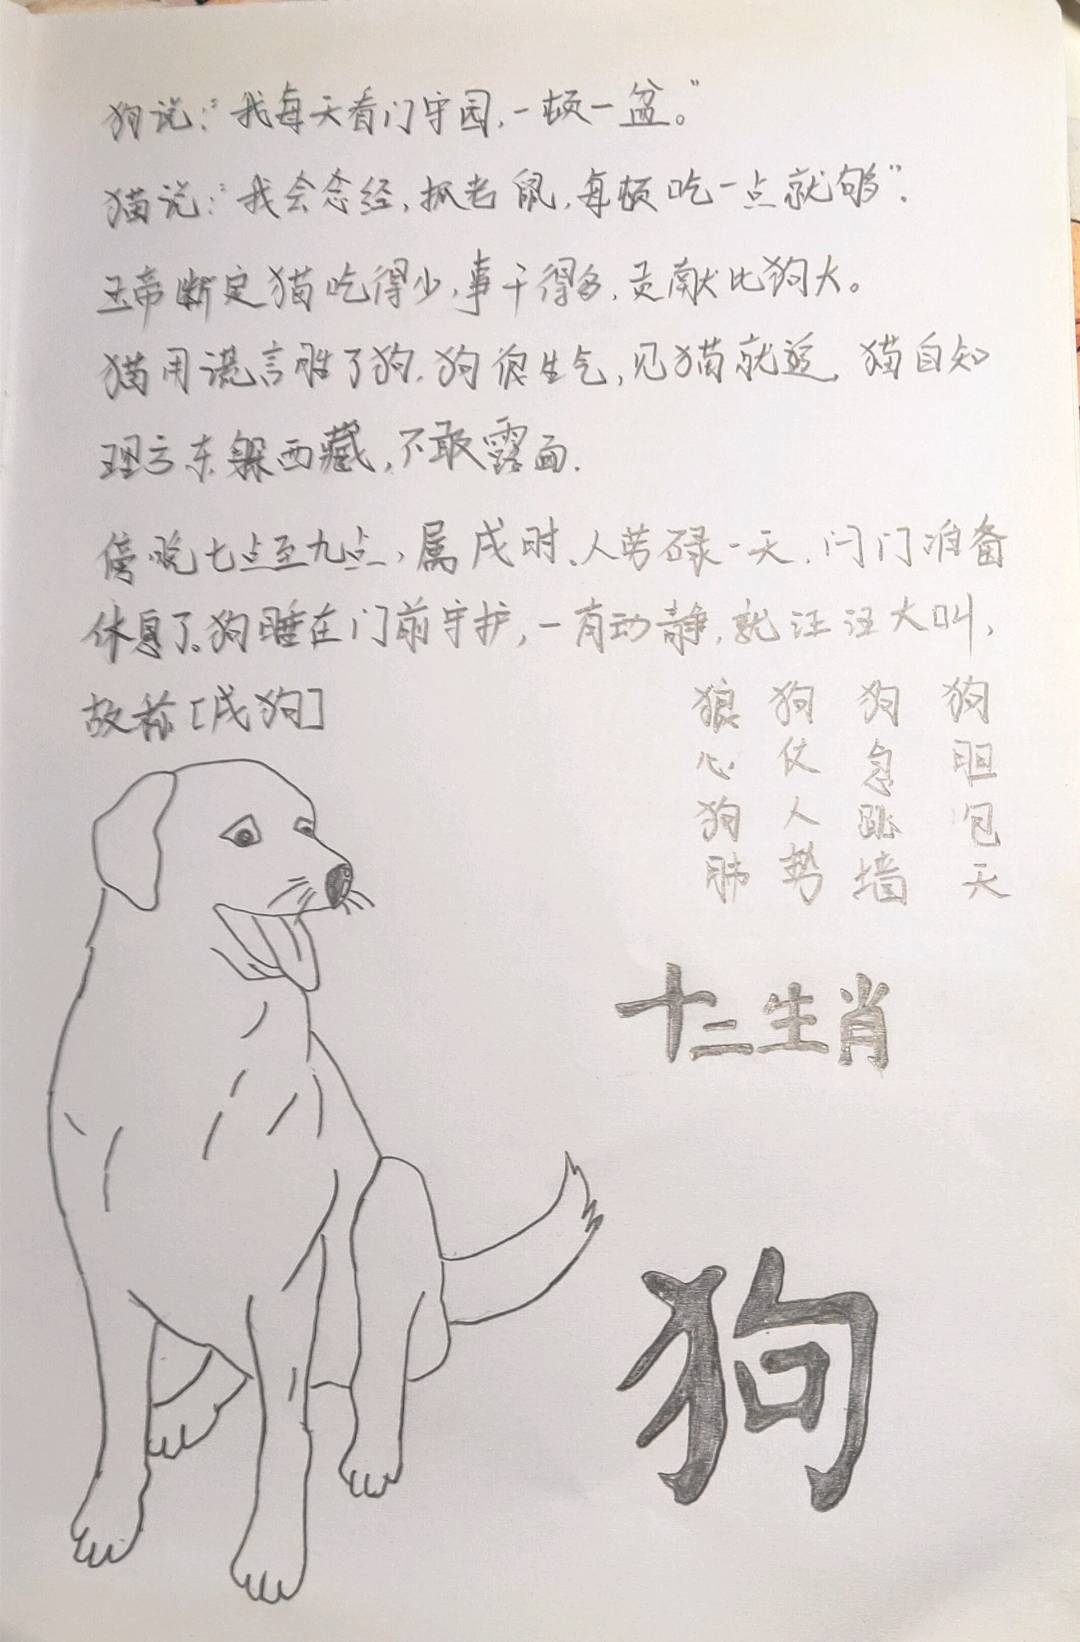 狗说："我每天看门守园,一顿一盆。"
猫说："我会念经,抓老鼠,每顿吃一点就够".
玉帝断定猫吃得少,事干得多,贡献比狗大。
猫用谎言胜了狗.狗很生气,见猫就追,猫自知
理亏东躲西藏,不敢露面.
傍晚七点至九点,属戌时、人劳碌一天.闩门准备
休息了。狗睡在门前守护,一有动静,就汪汪大叫,
故称[戌狗]
狼心狗肺
狗仗人势
狗急跳墙
狗胆包天
十二生肖
狗